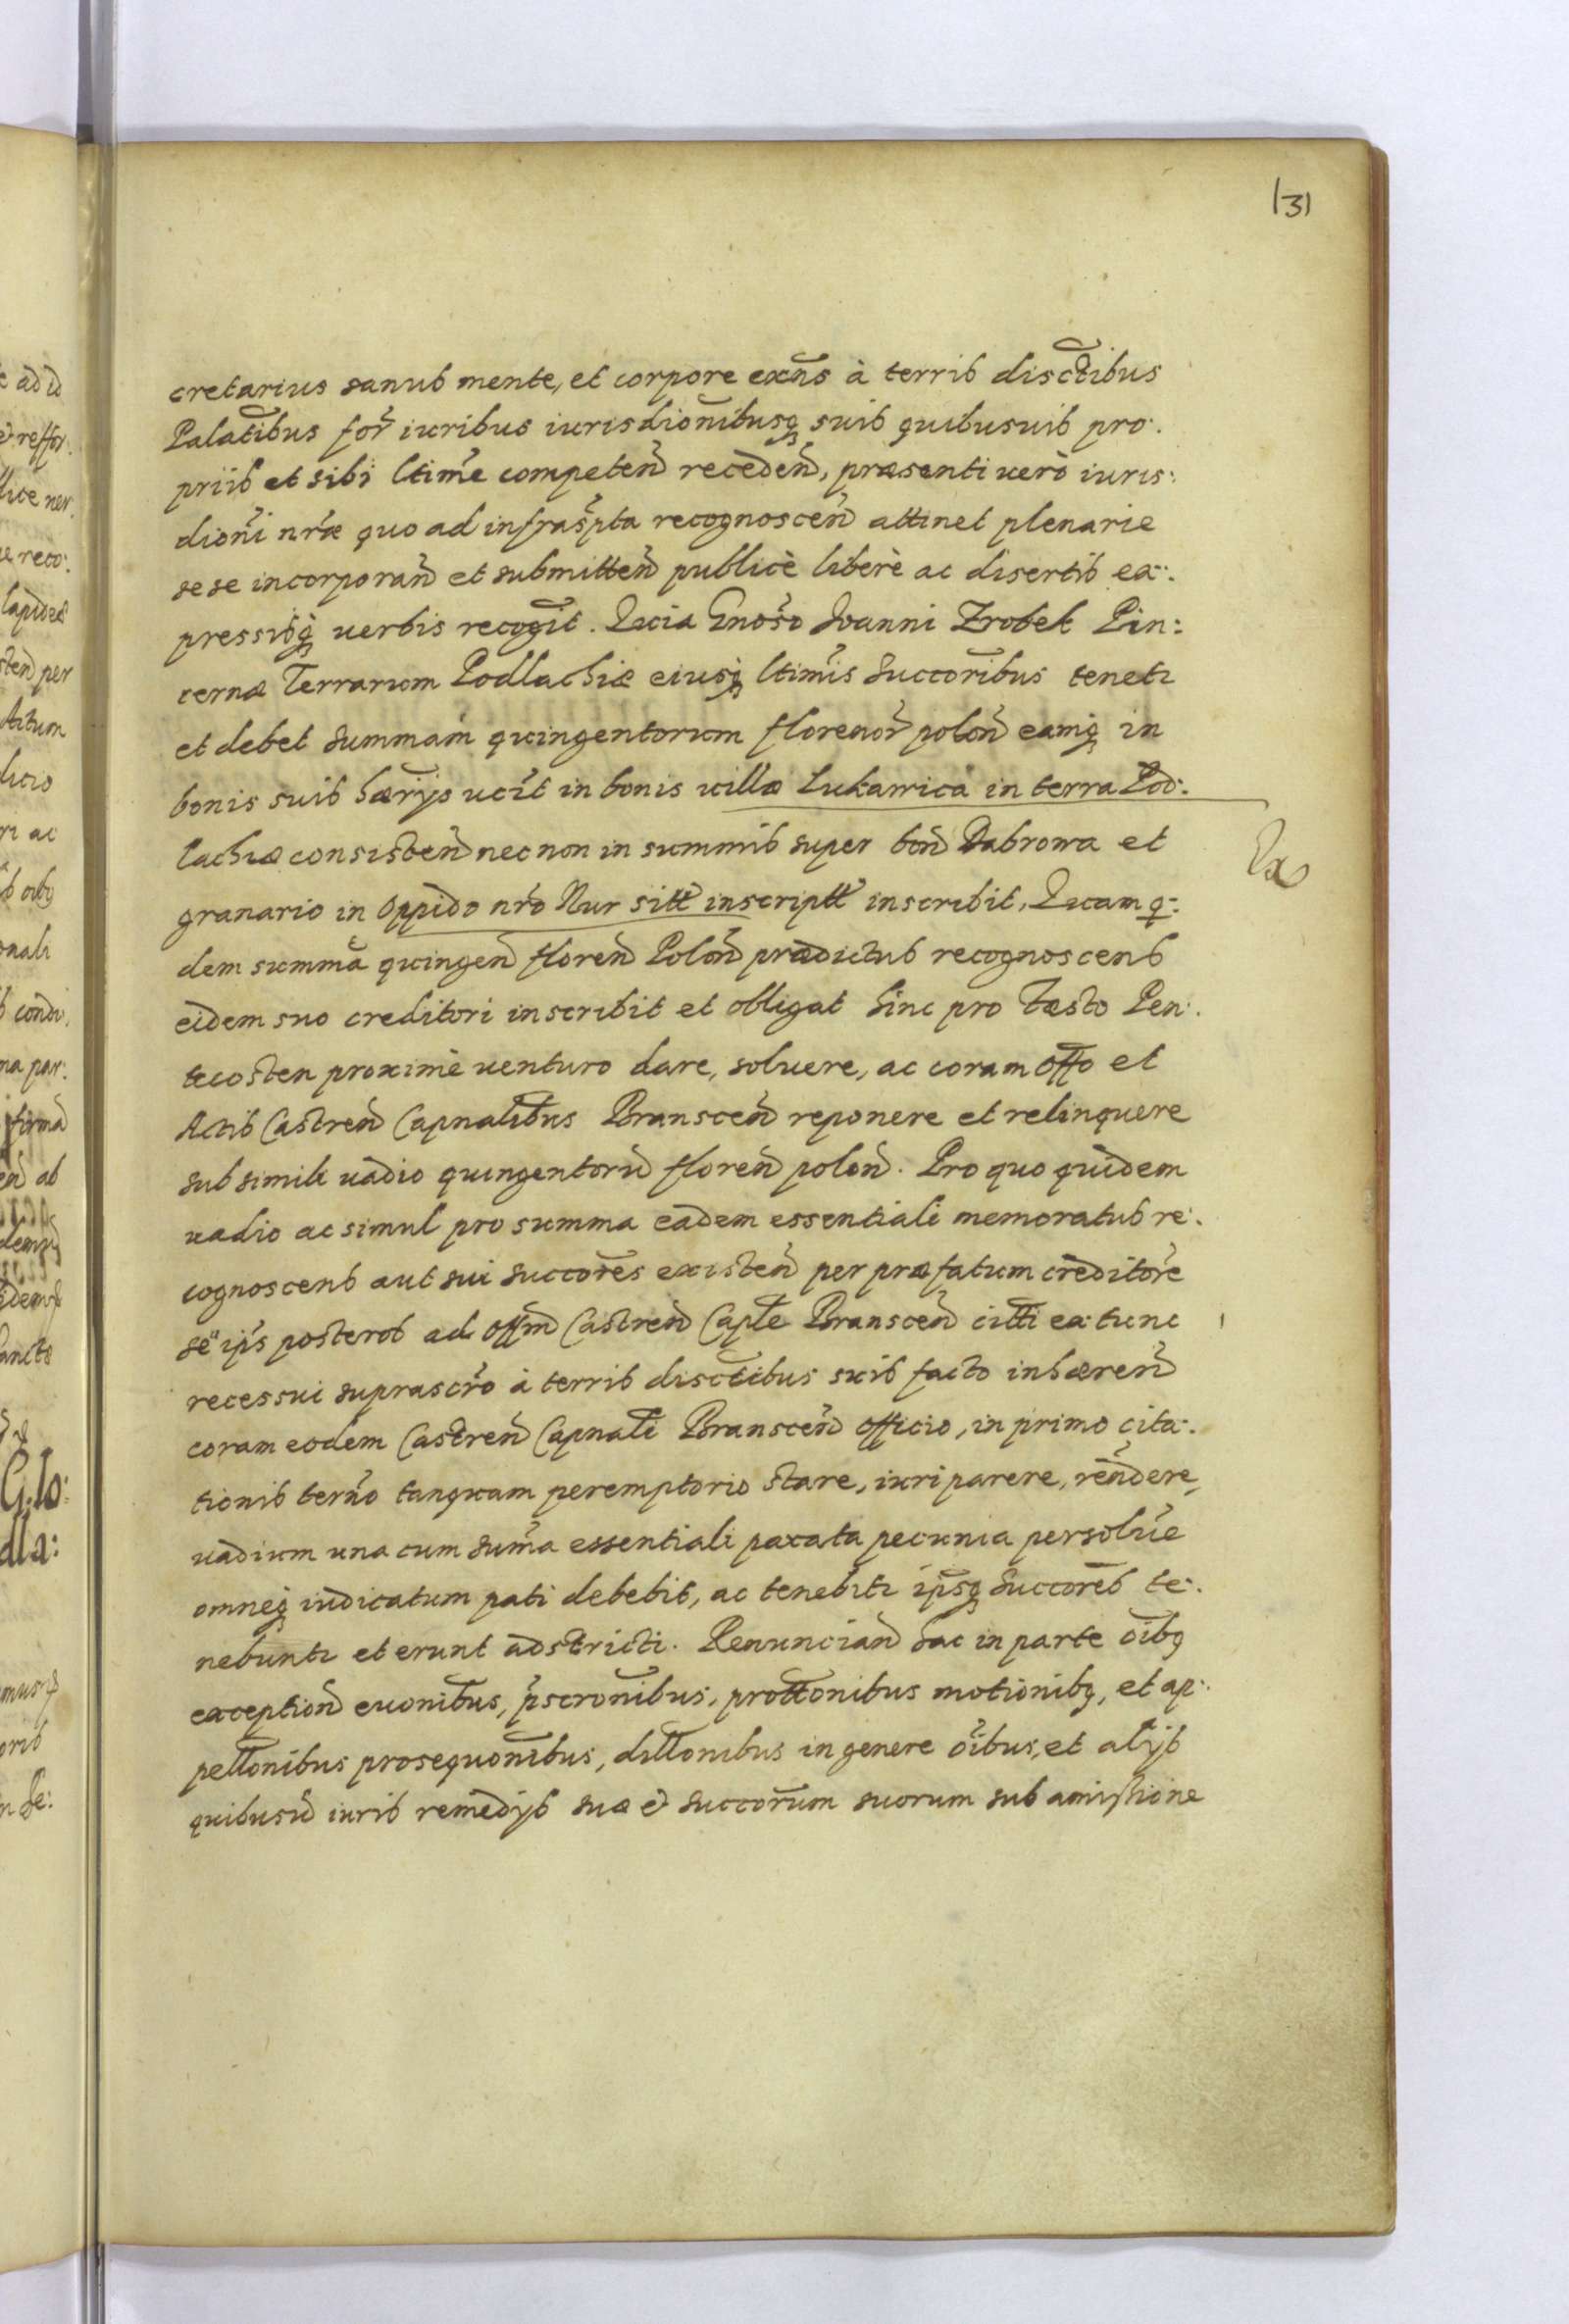 131
cretarius sanus mente, et corpore exñs à terris disctibus
Palatibus for iuribus iurisdionibusq suis quibusuis pro:
priis et sibi ltime competeñ recedeñ, præsenti uerò iuris:
dioni nræ quo ad infraspta recognosceñ attinet plenarie
sese incorporañ et submitteñ publicè liberè ac disertis ex:
pressisq uerbis recogit. Quia Gnoso Ioanni Zrobek Pin:
cernæ Terrarum Podlachiæ eiusq ltimis succoribus teneti
et debet summam quingentorum florenor poloñ eamq in
bonis suis hærijs ucit in bonis uillæ Lukawica in terra Pod:
lachiæ consisteñ nec non in summis super boñ Dabrowa et
granario in Oppido nro Nur sitt inscriptt inscribit, Quam q:
dem summã quingeñ floreñ Poloñ prædictus recognoscens
eidem suo creditori inscribit et obligat hinc pro fæsto Pen:
tecosten proximè uenturo dare, soluere, ac coram offo et
Actis Castreñ Capnalibus Bransceñ reponere et relinquere
sub simili uadio quingentorũ floreñ poloñ. Pro quo quidem
uadio ac simul pro summa eadem essentiali memoratus re:
cognoscens aut sui succores existeñ per præfatum creditore
seu ips posteros ad offm Castreñ Caple Bransceñ citti ex tunc
recessui suprascro à terris disctibus suis facto inhæreñ
coram eodem Castreñ Capnali Bransceñ officio, in primo cita:
tionis terno tanquam peremptorio stare, iuri parere, rendere,
uadium una cum suma essentiali parata pecunia persolue
omneq iudicatum pati debebit, ac tenebiti ipsq succores te:
nebunti et erunt adstricti. Renunciañ hac in parte oibq
exceptioñ euonibus, pscronibus, prottonibus motionibq, et ap:
pellonibus prosequonibus, dillonibus in genere oibus, et alijs
quibusũ iuris remedijs suæ et succorum suorum sub amissione